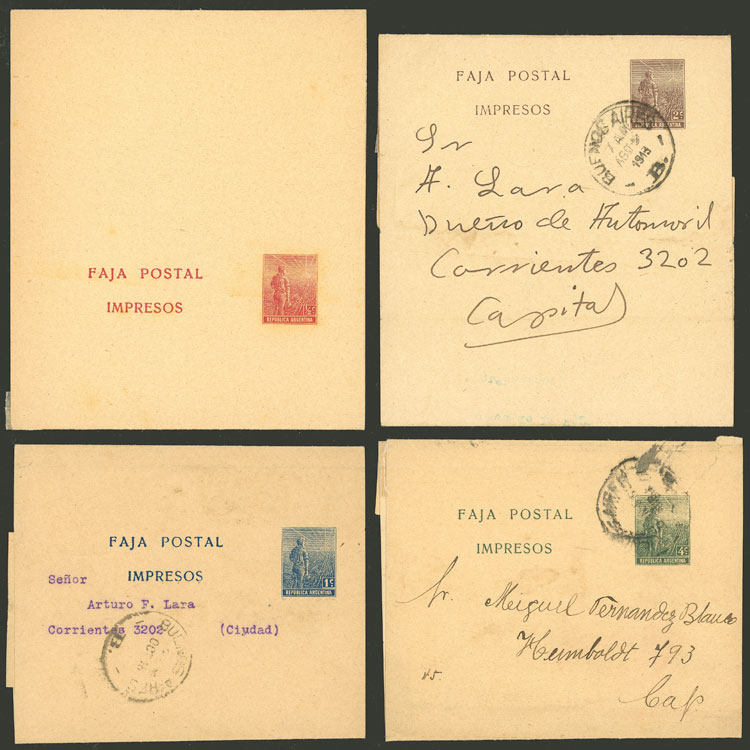 FAJA POSTAL
IMPRESOS
½C
REPUBLICA ARGENTINA
FAJA POSTAL
IMPRESOS
2C
REPUBLICA ARGENTINA
BUENOS AIRES
AGO
1913
B.
Sr
A. Lara
Dueño de Automovil
Corrientes 3202
Capital
FAJA POSTAL
IMPRESOS
1C
REPUBLICA ARGENTINA
Señor
Arturo F. Lara
Corrientes 3202 (Ciudad)
BUENOS AIRES
B.
FAJA POSTAL
IMPRESOS
4C
REPUBLICA ARGENTINA
Sr. Meiguel Fernandez Blanco
Humboldt 793
Cap.